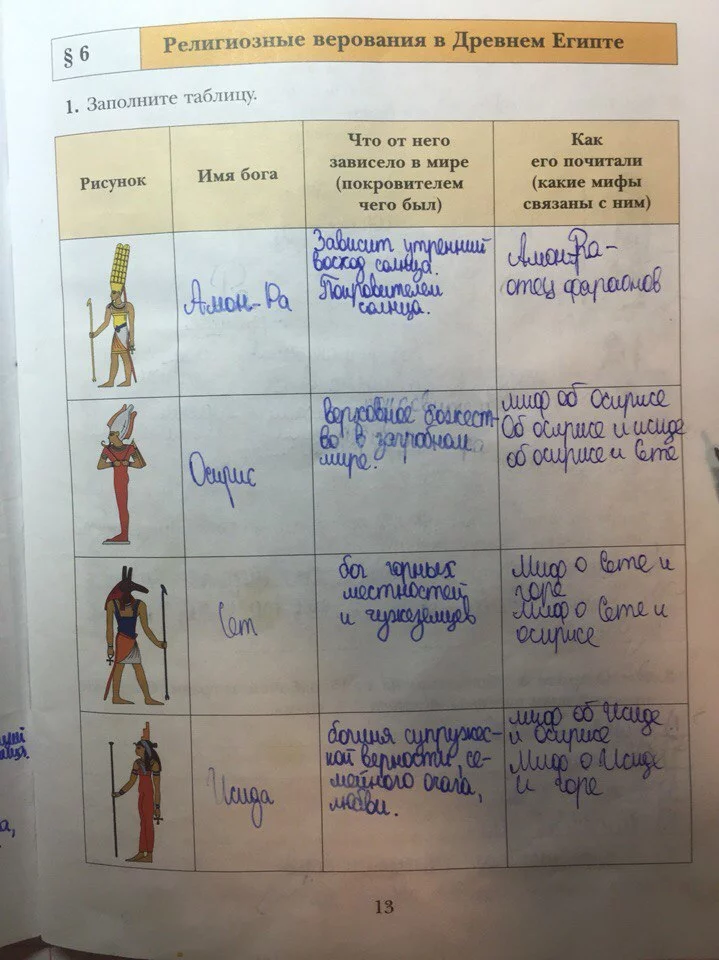 § 6
Религиозные верования в Древнем Египте
1. Заполните таблицу.
Рисунок
Имя бога
Что от него
зависело в мире
(покровителем
чего был)
Как
его почитали
(какие мифы
связаны с ним)
Амон-Ра
Зависит утренний
восход солнца.
Покровителем
солнца.
Амон-Ра -
отец фараонов
Осирис
верховное божест-
во в загробном
мире.
миф об Осирисе
Об осирисе и исиде
об осирисе и Сете
Сет
бог горных
местностей
и чужеземцев
Миф о Сете и
горе
Миф о Сете и
осирисе
Исида
богиня супружес-
кой верности, се-
мейного очага,
любви.
миф об Исиде
и Осирисе
Миф о Исиде
и горе
13